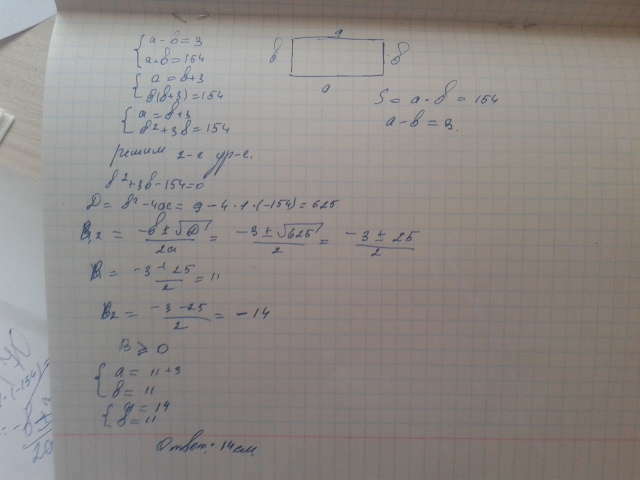 { a - в = 3
a · в = 154
{ a = в + 3
в(в+3) = 154
{ a = в + 3
в² + 3в = 154
решим 2-е ур-е.
в² + 3в - 154 = 0
D = в² - 4ac = 9 - 4 · 1 · (-154) = 625
В₁,₂ = -в ± √D / 2a = -3 ± √625 / 2 = -3 ± 25 / 2
В₁ = -3 + 25 / 2 = 11
В₂ = -3 - 25 / 2 = -14
В ⩾ 0
{ a = 11 + 3
в = 11
{ a = 14
в = 11
Ответ: 14 см.
a
в
в
a
S = a · в = 154
a - в = 3.